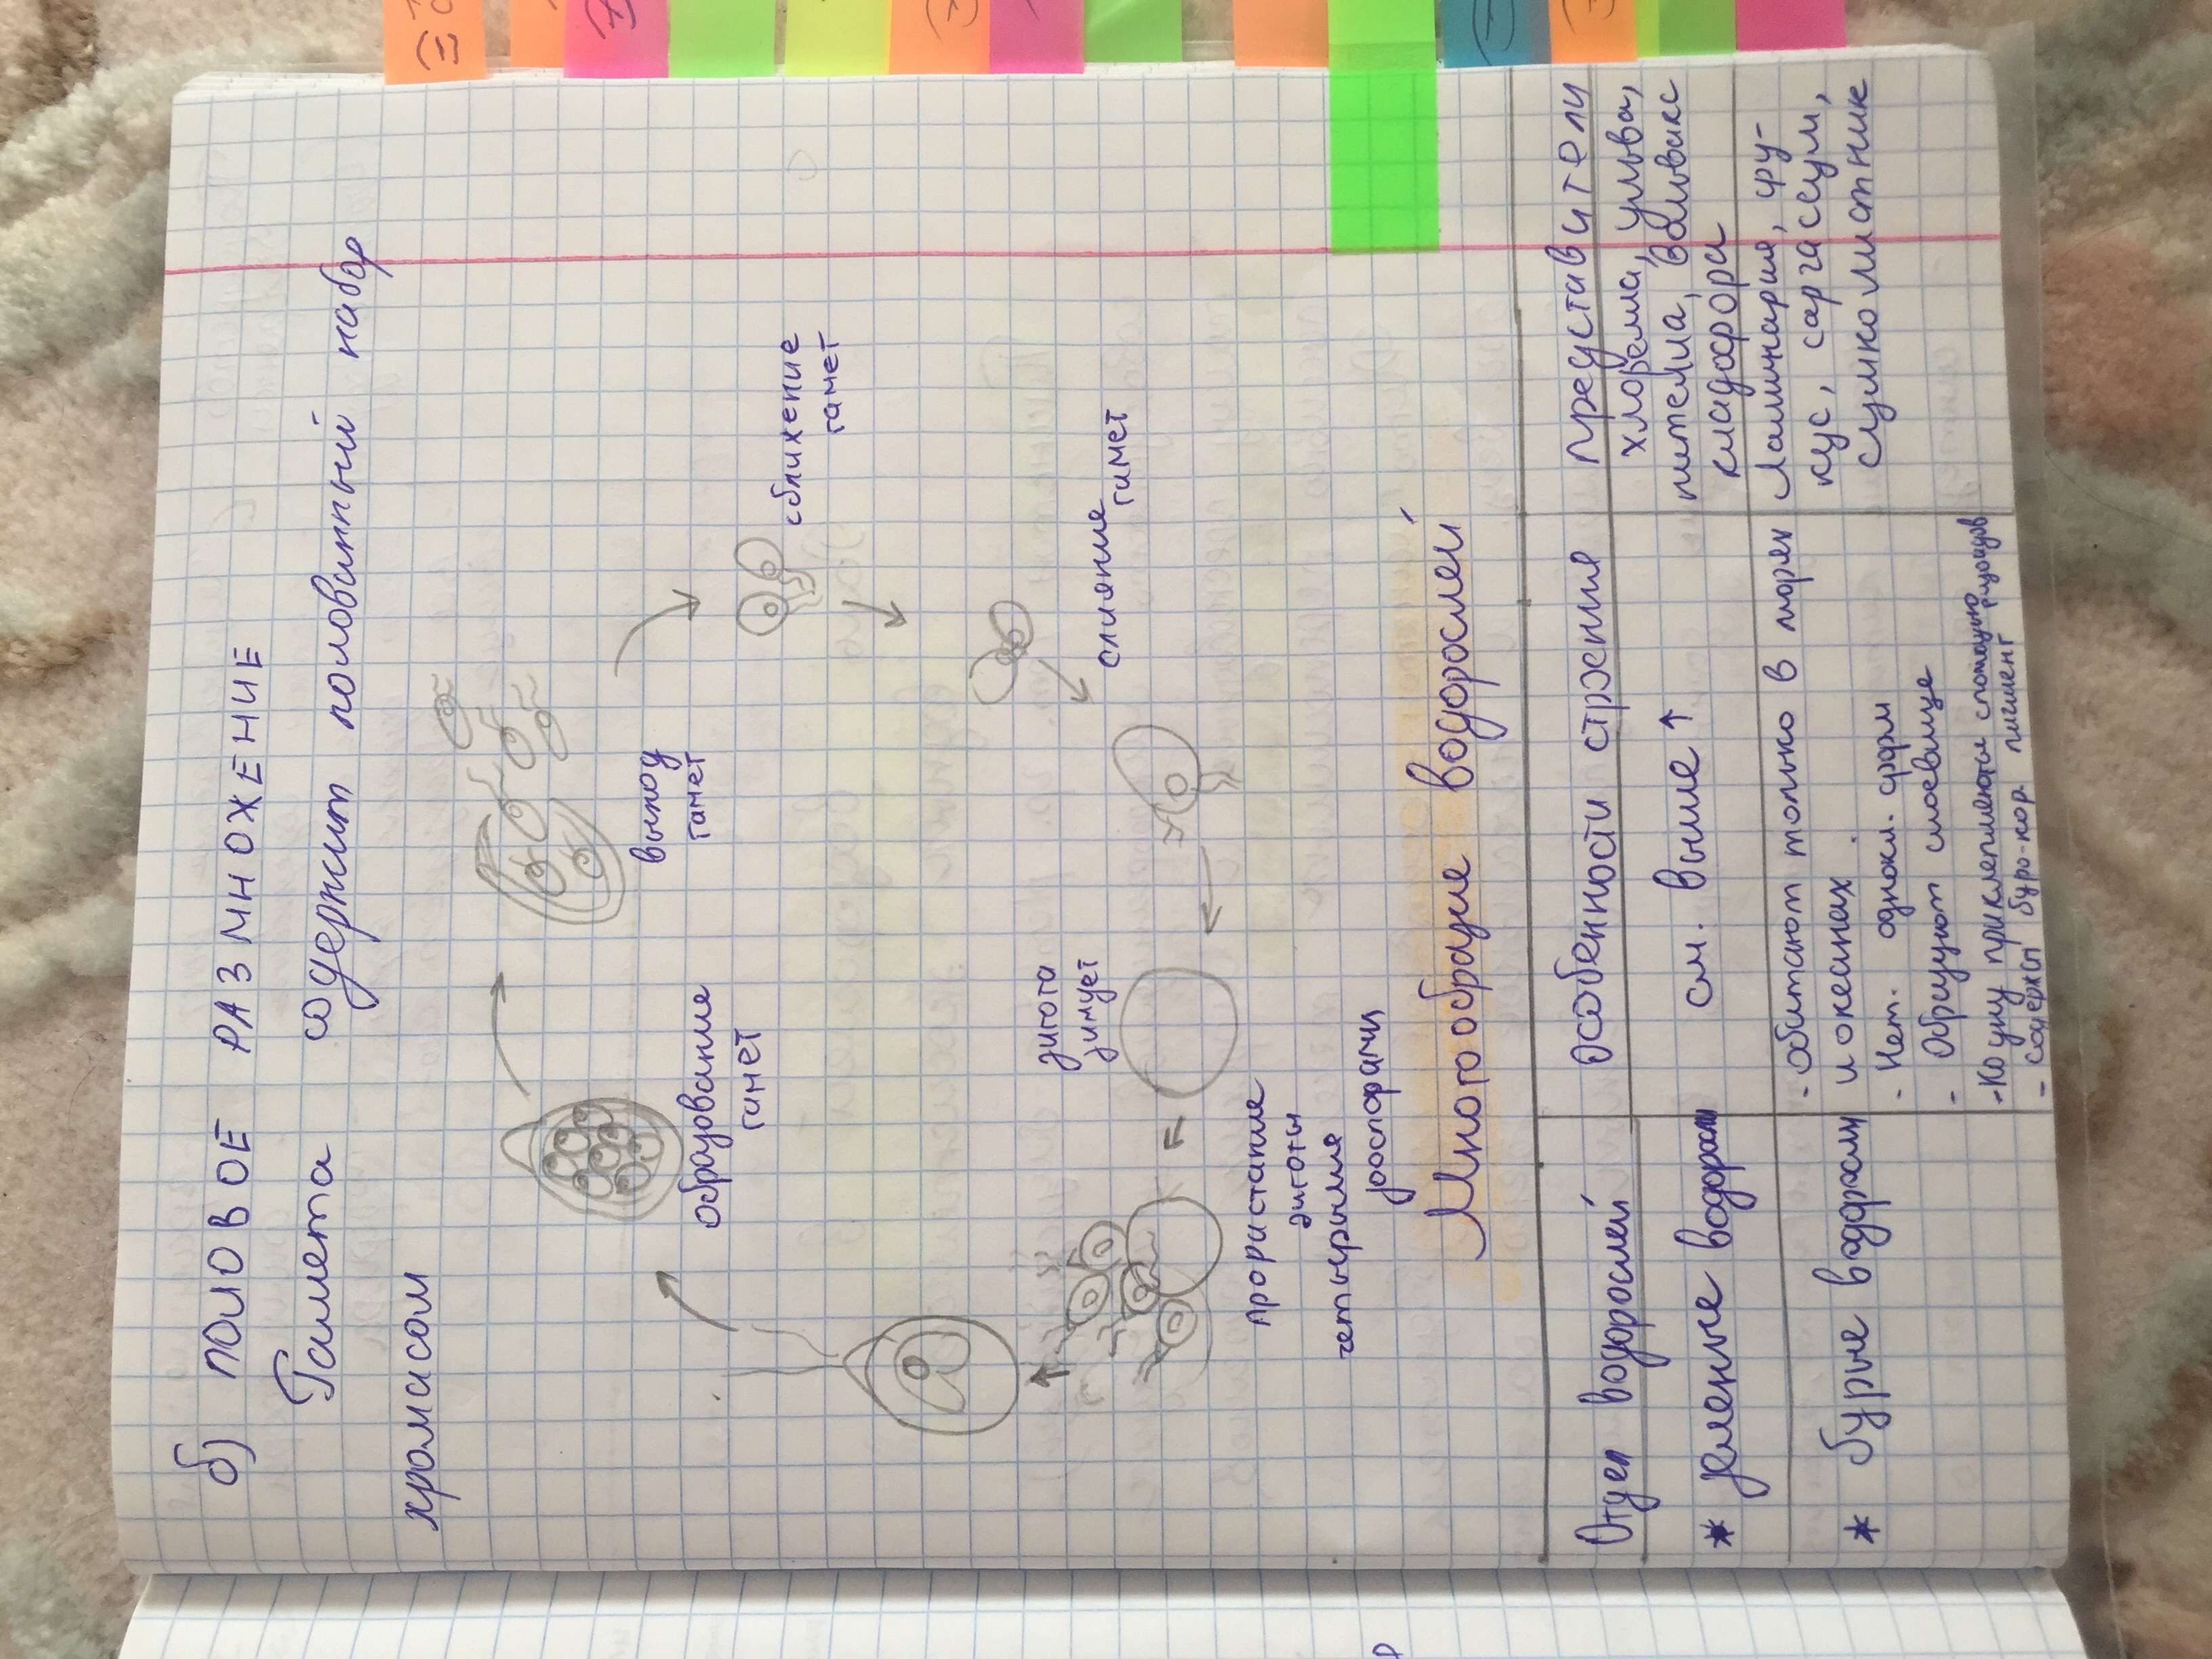 б) ПОЛОВОЕ РАЗМНОЖЕНИЕ
Гамета содержит половинный набор
хромасом
выход
гамет
образование
гамет
сближение
гамет
слияние
гамет
зигота
зимует
прорастание
зиготы
четырьмя
зооспорами
Многообразие водорослей
Отдел водорослей
особенности строения
представители
* зеленые водоросли
см. выше ↑
хлорелла, ульва,
нителла, вольвокс
кладофора
* бурые водоросли
- обитают только в морях
и океанах.
- Нет. однокл. форм
- Образуют слоевище
- Ко дну прикрепляются с помощью ризоидов
- содержат буро-кор. пигмент
Ламинария, фу-
кус, саргассум,
сумколистник